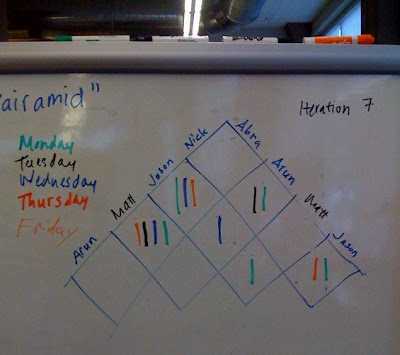 airamid"
Iteration 7
Monday
Tuesday
Wednesday
Thursday
Friday
Arun
Matt
Jason
Nick
Abra
Arun
Matt
Jason